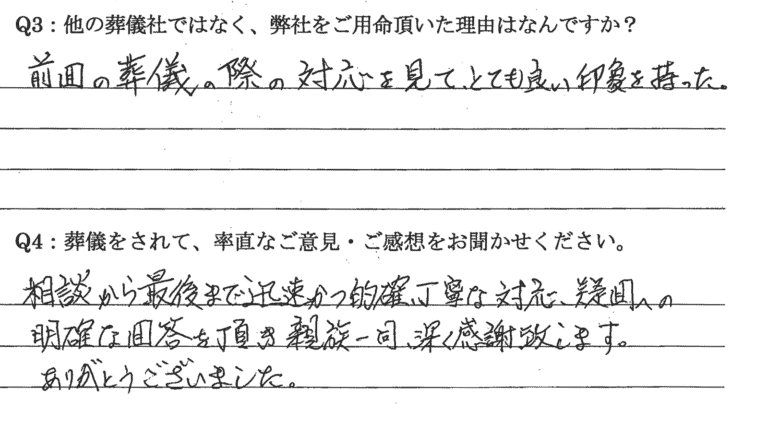 Q3：他の葬儀社ではなく、弊社をご用命頂いた理由はなんですか？
前回の葬儀の際の対応を見て、とても良い印象を持った。
Q4：葬儀をされて、率直なご意見・ご感想をお聞かせください。
相談から最後まで迅速かつ的確、丁寧な対応、疑問への
明確な回答を頂き親族一同、深く感謝致します。
ありがとうございました。